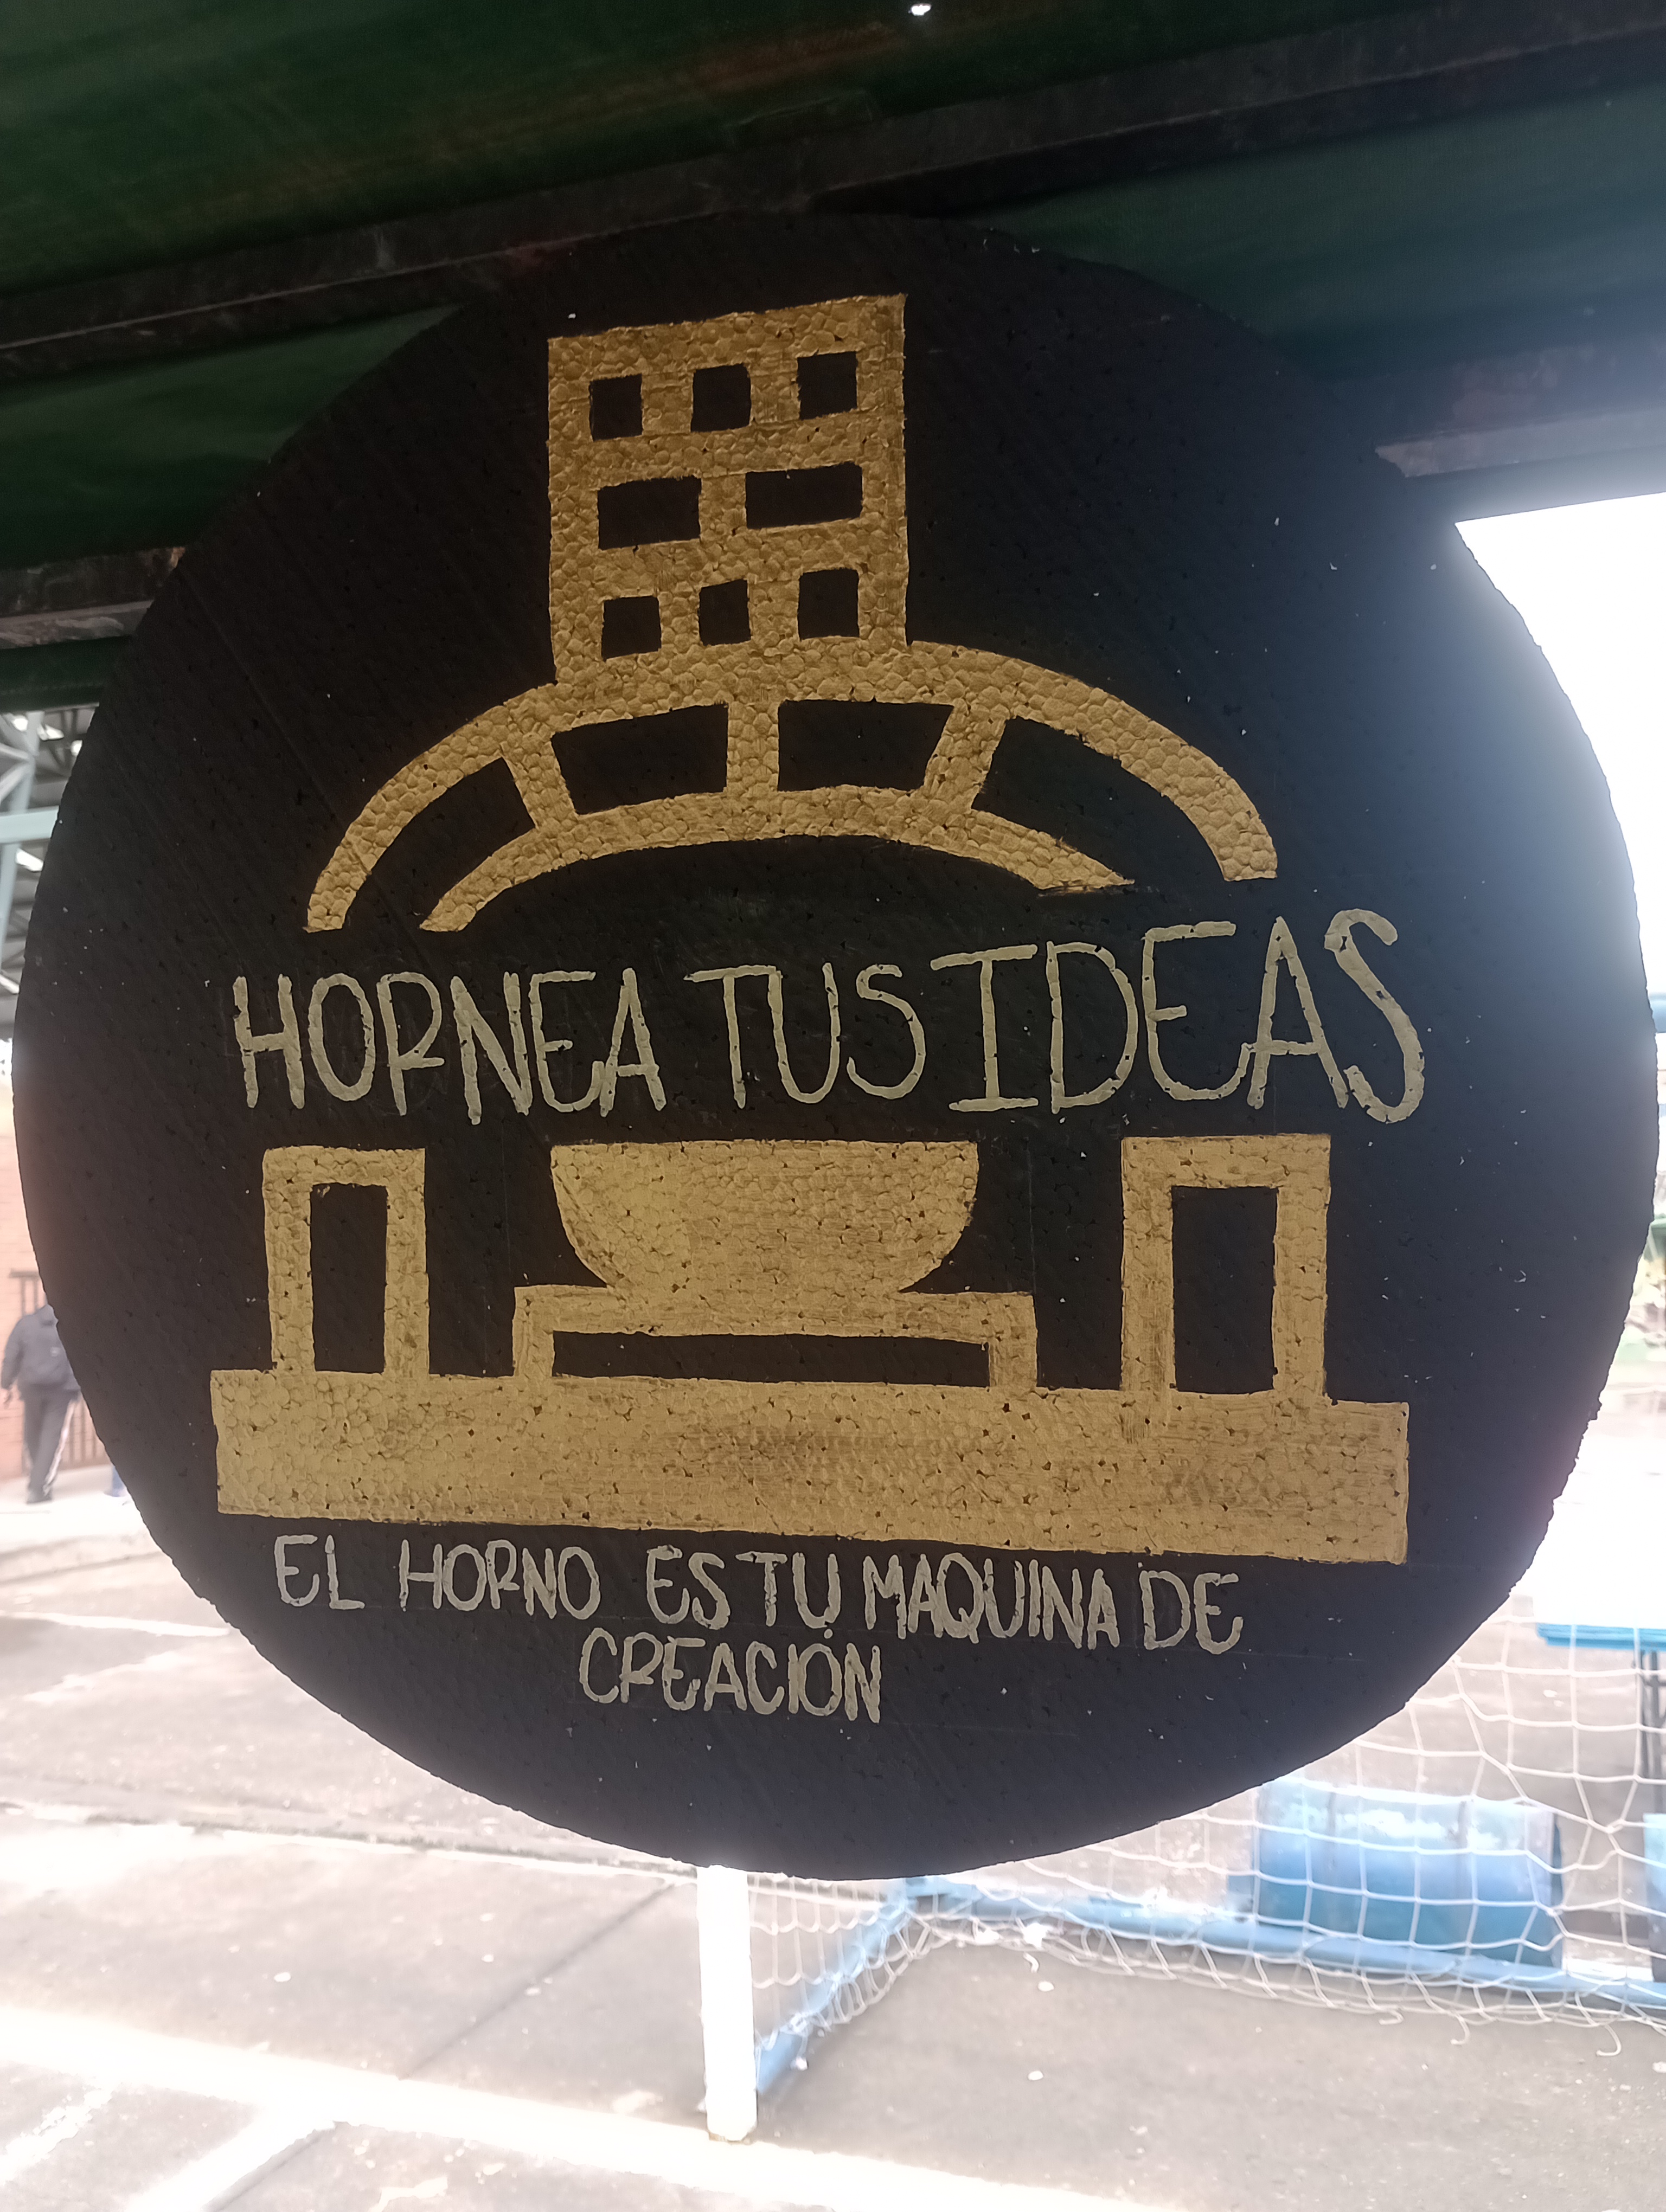 HORNEA TUS IDEAS
EL HORNO ES TU MAQUINA DE
CREACIÓN